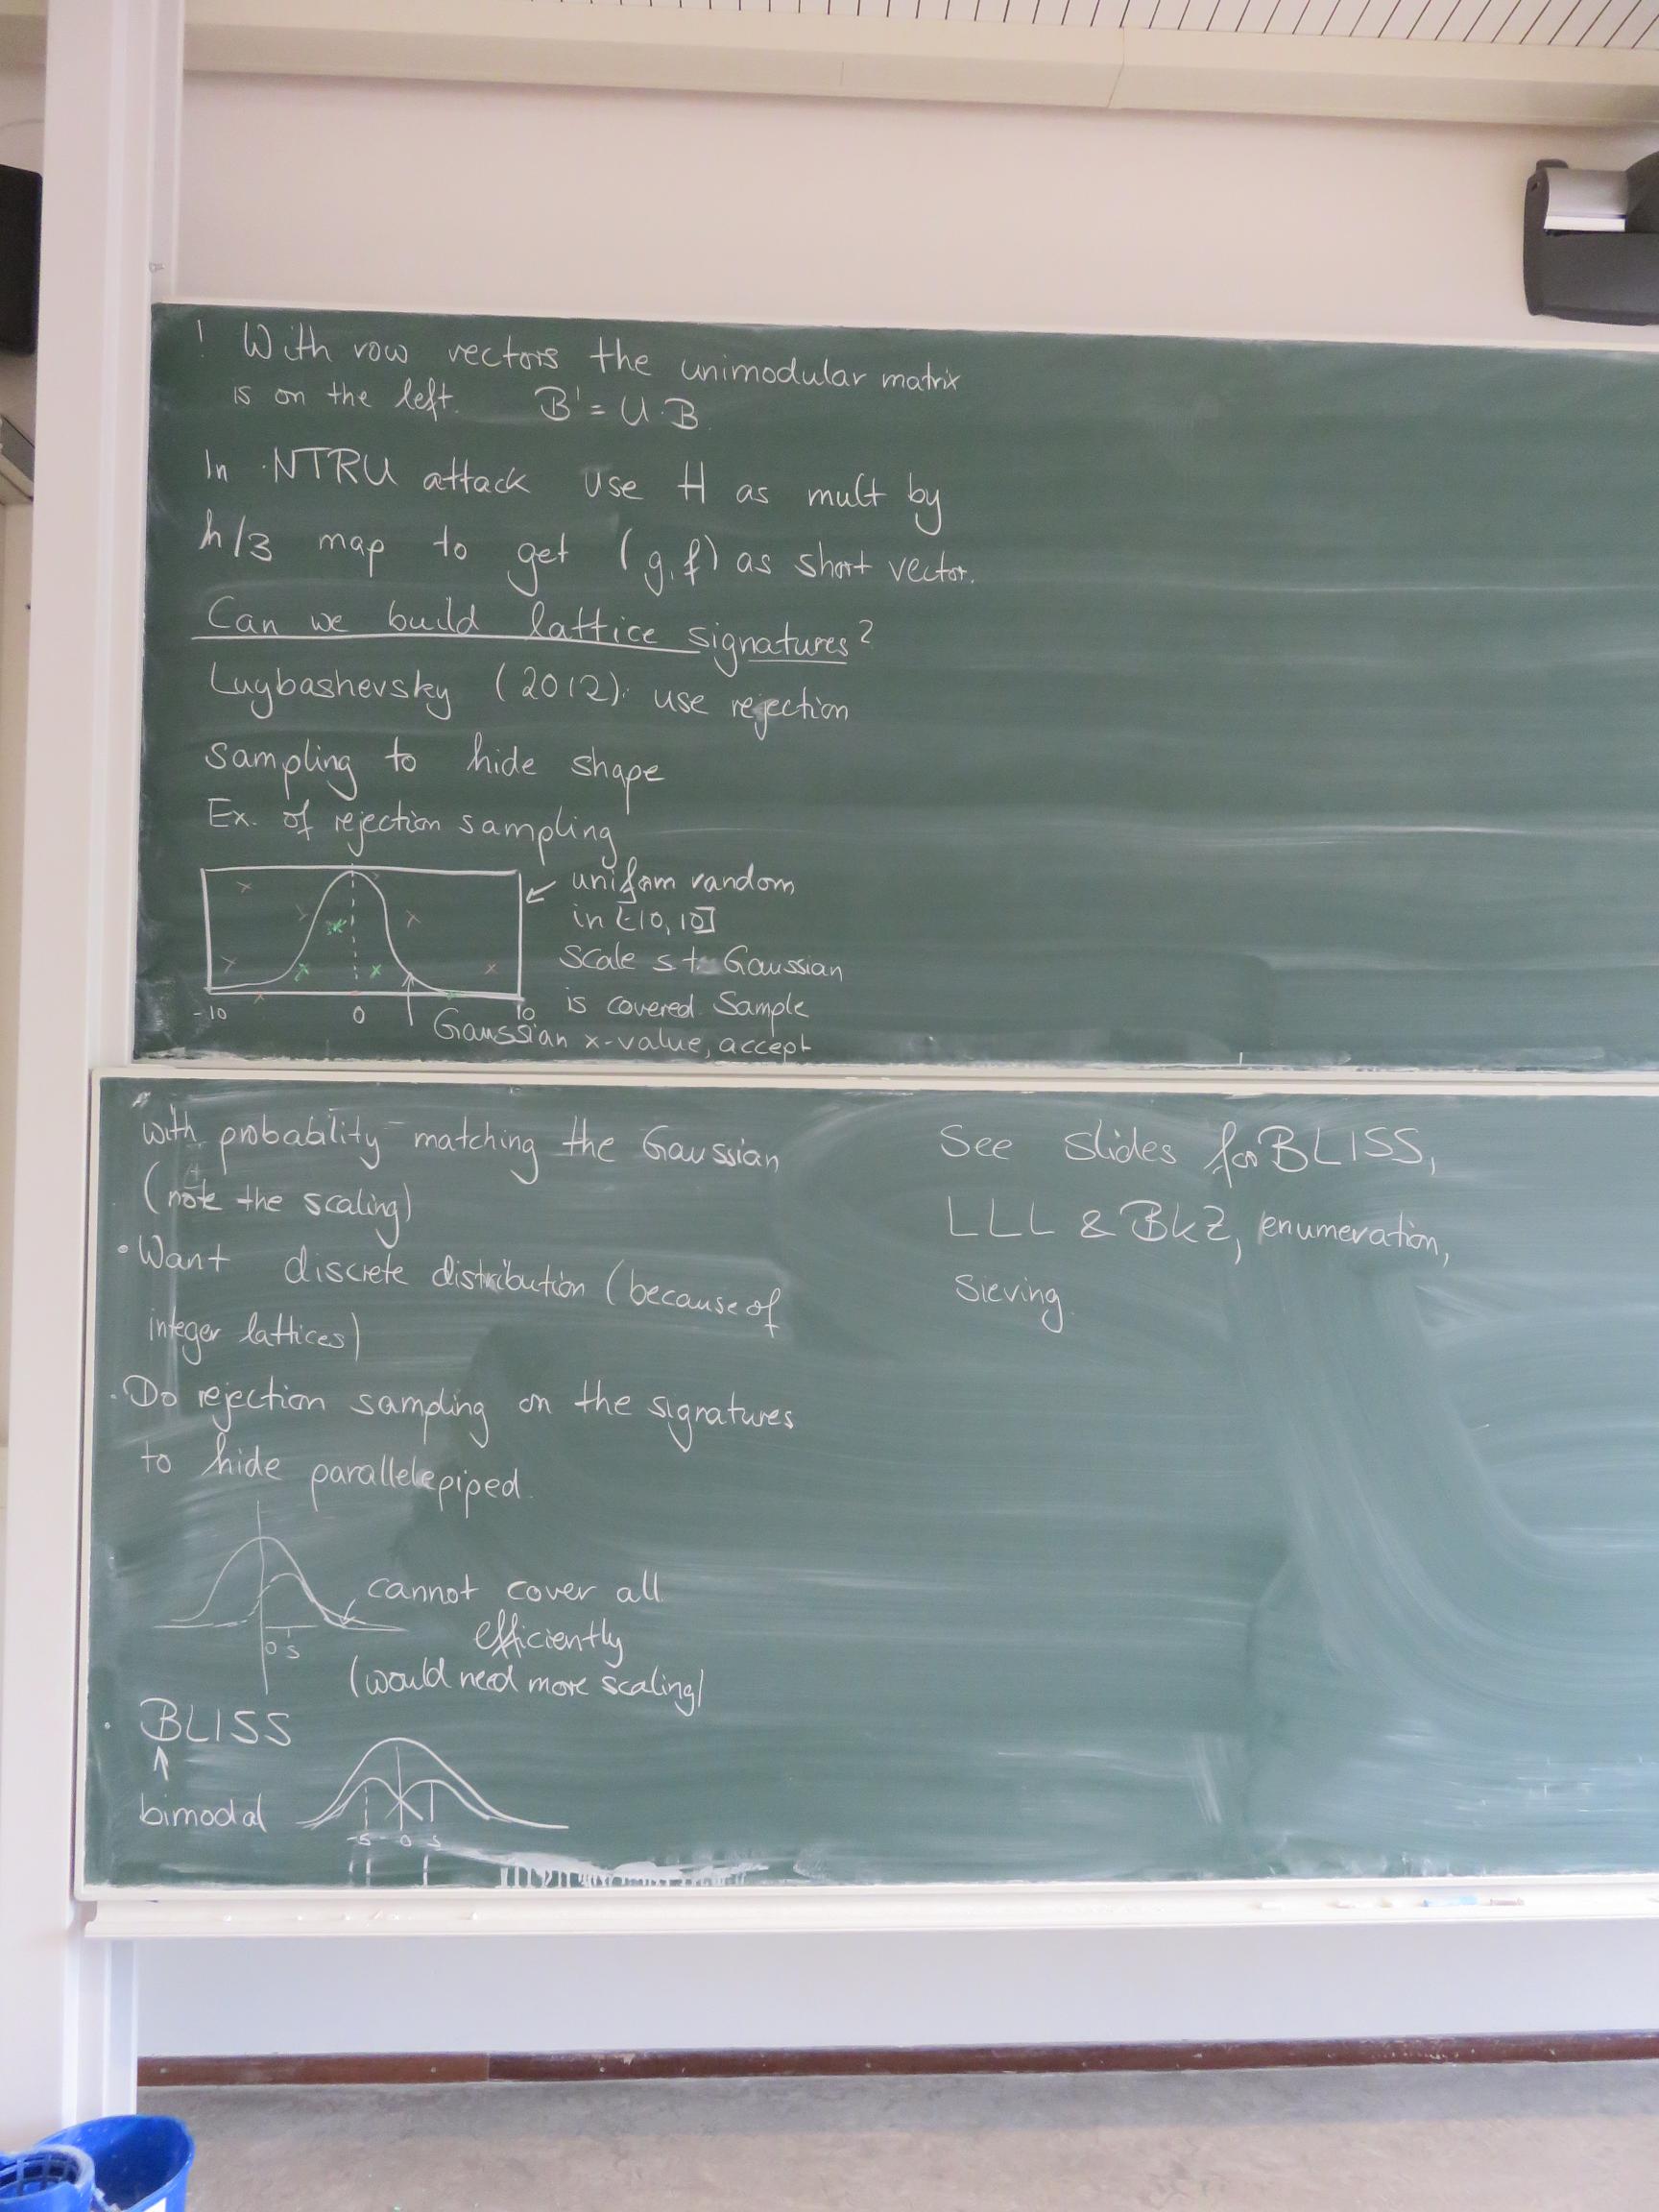 ! With row vectors the unimodular matrix
is on the left. B' = U·B.
In NTRU attack use H as mult by
h/3 map to get (g,f) as short vector.
Can we build lattice signatures?
Luybashevsky (2012): use rejection
sampling to hide shape
Ex. of rejection sampling
uniform random
in [-10, 10]
scale s.t. Gaussian
is covered. Sample
-10 0 10
Gaussian x-value, accept
with probability matching the Gaussian
(note the scaling)
• Want discrete distribution (because of
integer lattices)
• Do rejection sampling on the signatures
to hide parallelepiped.
cannot cover all
efficiently
0 s
(would need more scaling)
• BLISS
↑
bimodal
-s 0 s
See slides for BLISS,
LLL & BKZ, enumeration,
sieving.